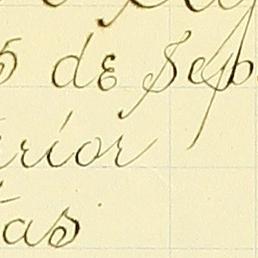 5 de Sep
erior
tas